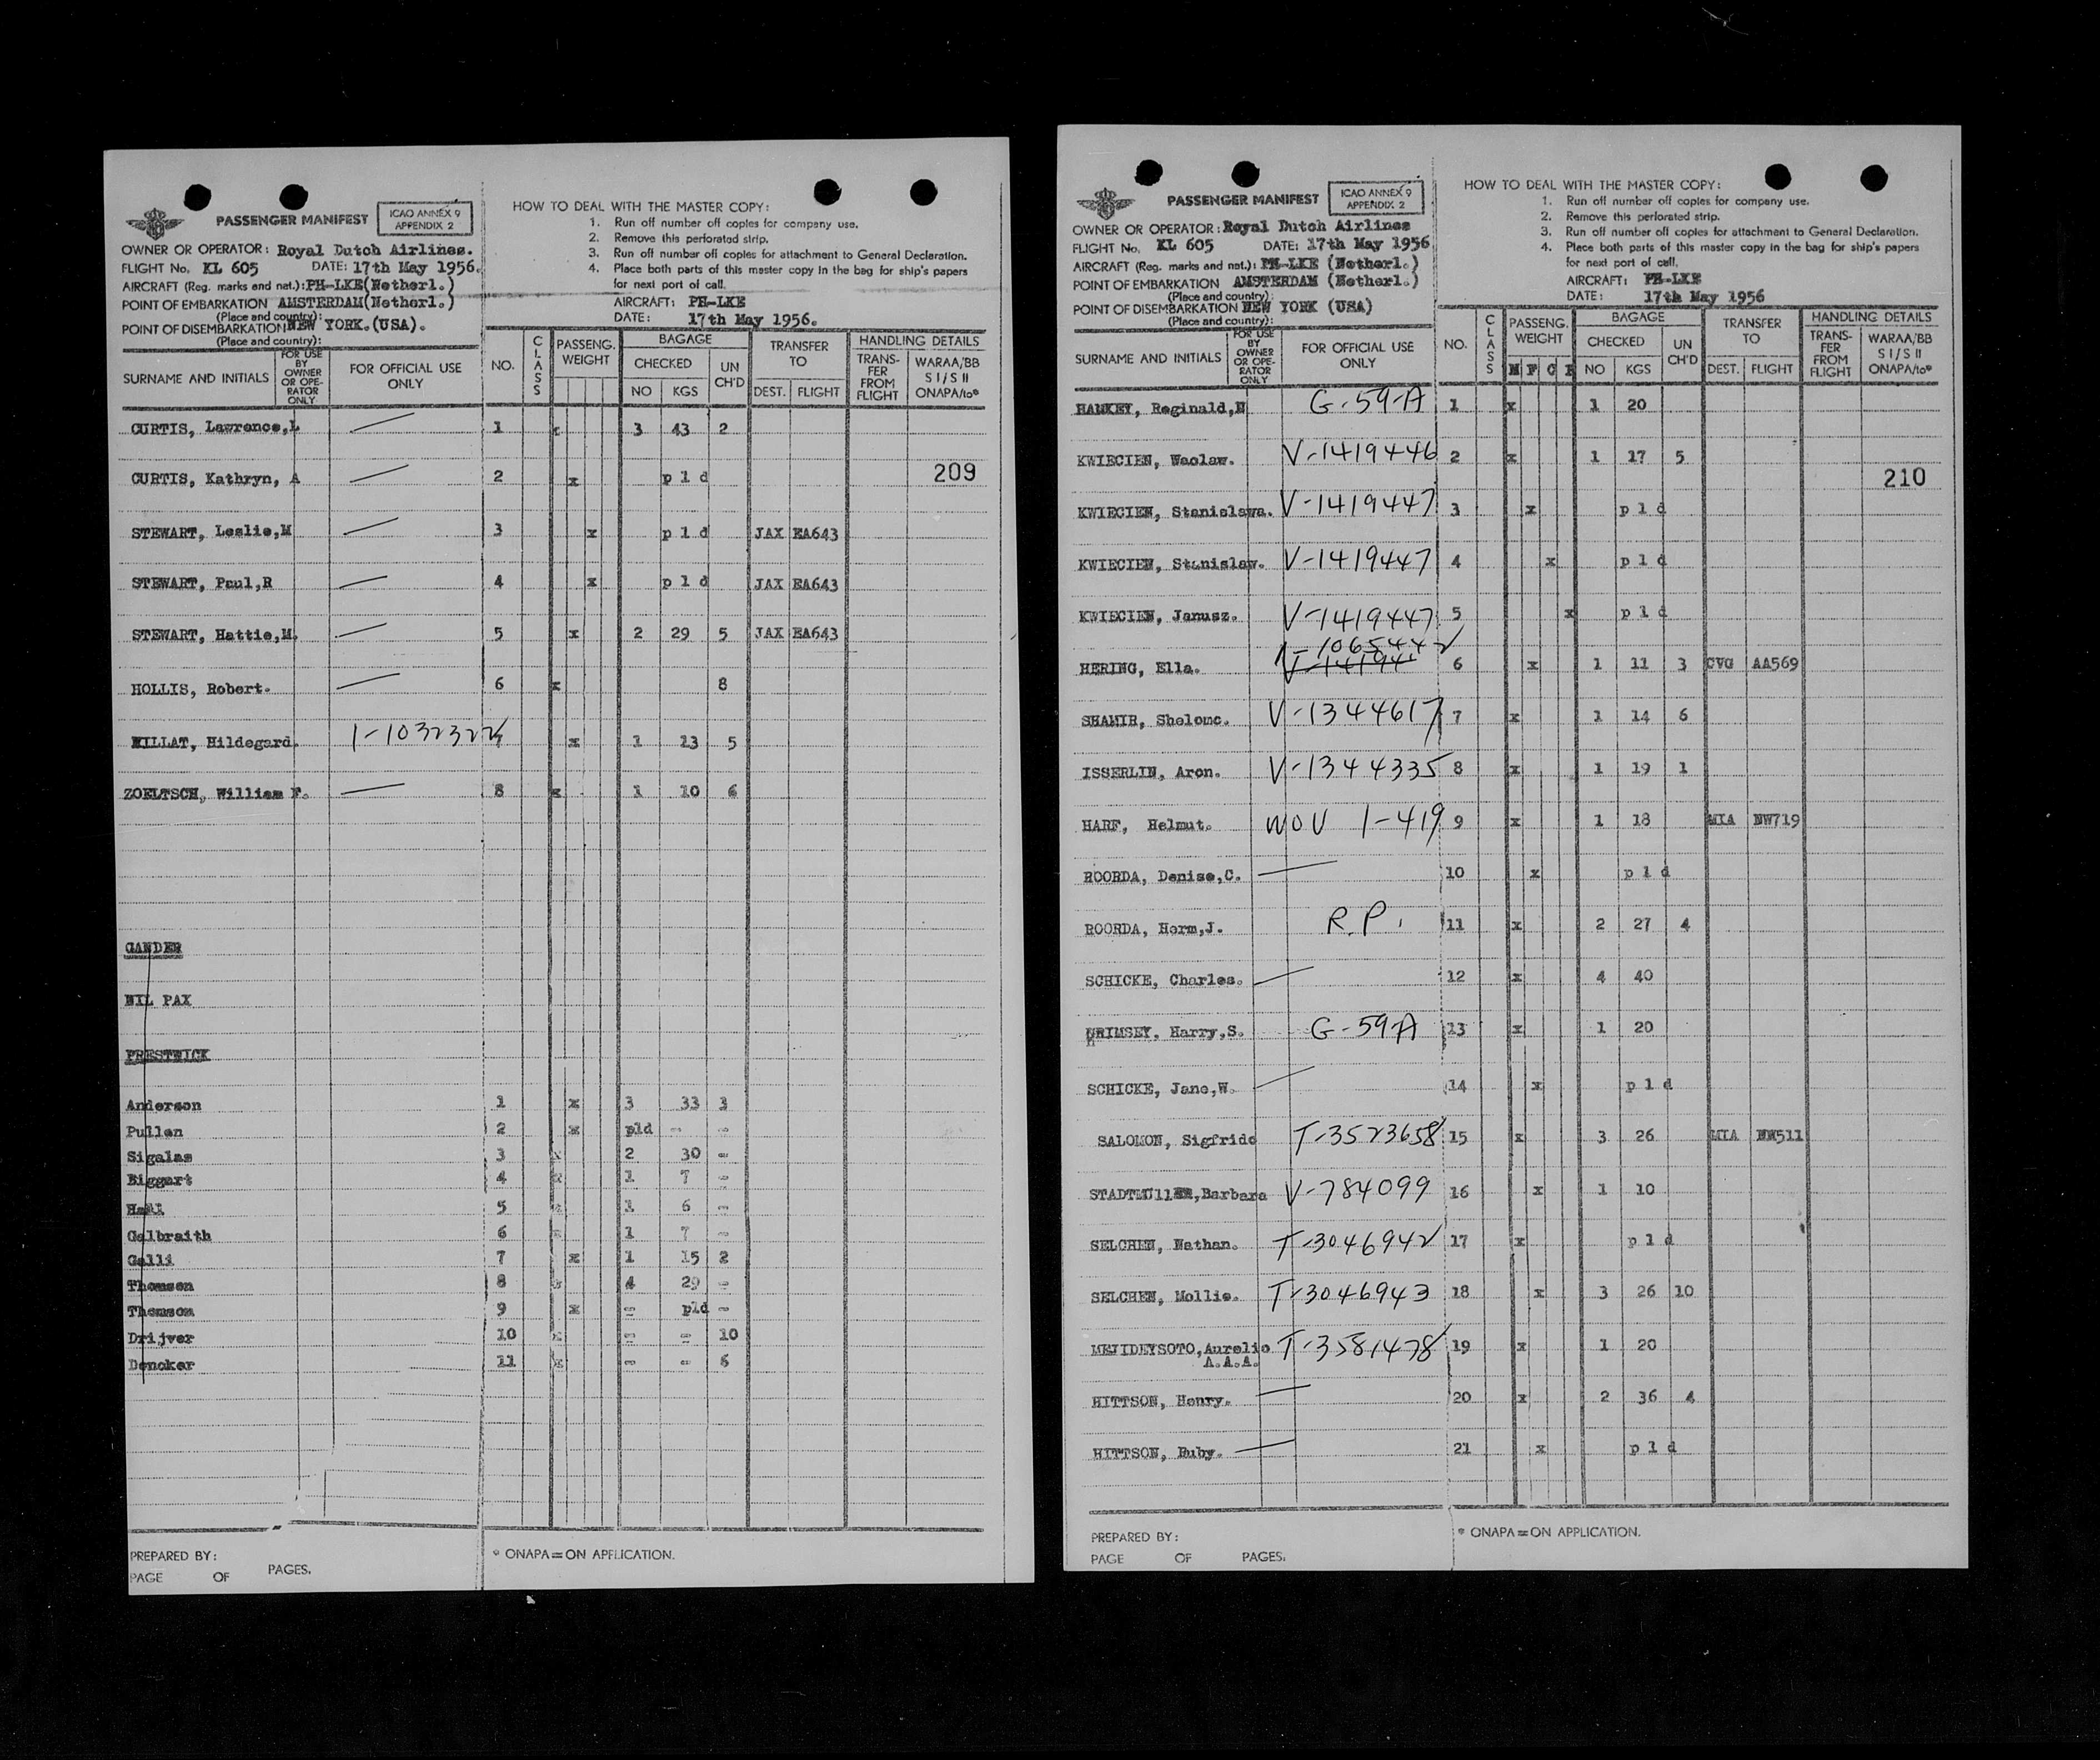 PASSENGER MANIFEST
ICAO ANNEX 9
APPENDIX 2
OWNER OR OPERATOR: Royal Dutch Airlines.
FLIGHT No. KL 605 DATE: 17th May 1956.
AIRCRAFT (Reg. marks and nat.): PH-LKE(Netherl.)
POINT OF EMBARKATION AMSTERDAM(Netherl.)
(Place and country):
POINT OF DISEMBARKATION NEW YORK.(USA).
(Place and country):
HOW TO DEAL WITH THE MASTER COPY:
1. Run off number off copies for company use.
2. Remove this perforated strip.
3. Run off number off copies for attachment to General Declaration.
4. Place both parts of this master copy in the bag for ship's papers
for next port of call.
AIRCRAFT: PH-LKE
DATE: 17th May 1956.
SURNAME AND INITIALS
FOR USE BY OWNER OR OPE-RATOR ONLY
FOR OFFICIAL USE ONLY
NO.
CLASS
PASSENG. WEIGHT
BAGAGE
CHECKED
NO KGS
UN CH'D
TRANSFER TO
DEST. FLIGHT
HANDLING DETAILS
TRANS-FER FROM FLIGHT
WARAA/BB
S I/S II
ONAPA/to*
CURTIS, Lawrence,L 1 x 3 43 2
CURTIS, Kathryn, A 2 x p l d
209
STEWART, Leslie,M 3 x p l d JAX EA643
STEWART, Paul,R 4 x p l d JAX EA643
STEWART, Hattie,M. 5 x 2 29 5 JAX EA643
HOLLIS, Robert. 6 x 8
Hildegard. 1-1032322 7 x 1 23 5
ZOELTSCH, William F. 8 x 1 10 6
GANDER
NIL PAX
PRESTWICK
Anderson 1 x 3 33 3
Pullen 2 x pld - -
Sigalas 3 x 2 30 -
Biggart 4 x 1 7 -
Hall 5 x 1 6 -
Galbraith 6 x 1 7 -
Galli 7 x 1 15 2
Thomson 8 x 4 29 -
Thomson 9 x - pld -
Drijver 10 x - - 10
Denoker 11 x - - 6
PREPARED BY:
PAGE OF PAGES.
* ONAPA=ON APPLICATION.
PASSENGER MANIFEST
ICAO ANNEX 9
APPENDIX 2
OWNER OR OPERATOR: Royal Dutch Airlines
FLIGHT No. KL 605 DATE: 17th May 1956
AIRCRAFT (Reg. marks and nat.): PH-LKE (Netherl.)
POINT OF EMBARKATION AMSTERDAM (Netherl.)
(Place and country):
POINT OF DISEMBARKATION NEW YORK (USA)
(Place and country):
HOW TO DEAL WITH THE MASTER COPY:
1. Run off number off copies for company use.
2. Remove this perforated strip.
3. Run off number off copies for attachment to General Declaration.
4. Place both parts of this master copy in the bag for ship's papers
for next port of call.
AIRCRAFT: PH-LKE
DATE: 17th May 1956
SURNAME AND INITIALS
FOR USE BY OWNER OR OPE-RATOR ONLY
FOR OFFICIAL USE ONLY
NO.
CLASS
PASSENG. WEIGHT
M F C
BAGAGE
CHECKED
NO KGS
UN CH'D
TRANSFER TO
DEST. FLIGHT
HANDLING DETAILS
TRANS-FER FROM FLIGHT
WARAA/BB
S I/S II
ONAPA/to*
HANKEY, Reginald,N G-59-A 1 x 1 20
KWIECIEN, Waclaw. V-1419446 2 x 1 17 5
210
KWIECIEN, Stanislawa. V-1419447 3 x p l d
KWIECIEN, Stanislaw. V-1419447 4 x p l d
KWIECIEN, Janusz. V-1419447 5 x p l d
HERING, Ella. 1-1065442 6 x 1 11 3 CVG AA569
SHAMIR, Shelomo. V-1344617 7 x 1 14 6
ISSERLIN, Aron. V-1344335 8 x 1 19 1
HARF, Helmut. WOV 1-419 9 x 1 18 MIA NW719
ROORDA, Denise,C. 10 x p l d
ROORDA, Herm,J. R.P. 11 x 2 27 4
SCHICKE, Charles. 12 x 4 40
Harry,S. G-59-A 13 x 1 20
SCHICKE, Jane,W. 14 x p l d
SALOMON, Sigfrido T-3523658 15 x 3 26 MIA NW511
STADTMüllER,Barbara V-784099 16 x 1 10
SELCHEN, Nathan. T-3046942 17 x p l d
SELCHEN, Mollie. T-3046943 18 x 3 26 10
MEJIDEYSOTO,Aurelio T-3581478 19 x 1 20
A.A.A.
HITTSON, Henry. 20 x 2 36 4
HITTSON, Ruby. 21 x p l d
PREPARED BY:
PAGE OF PAGES.
* ONAPA=ON APPLICATION.